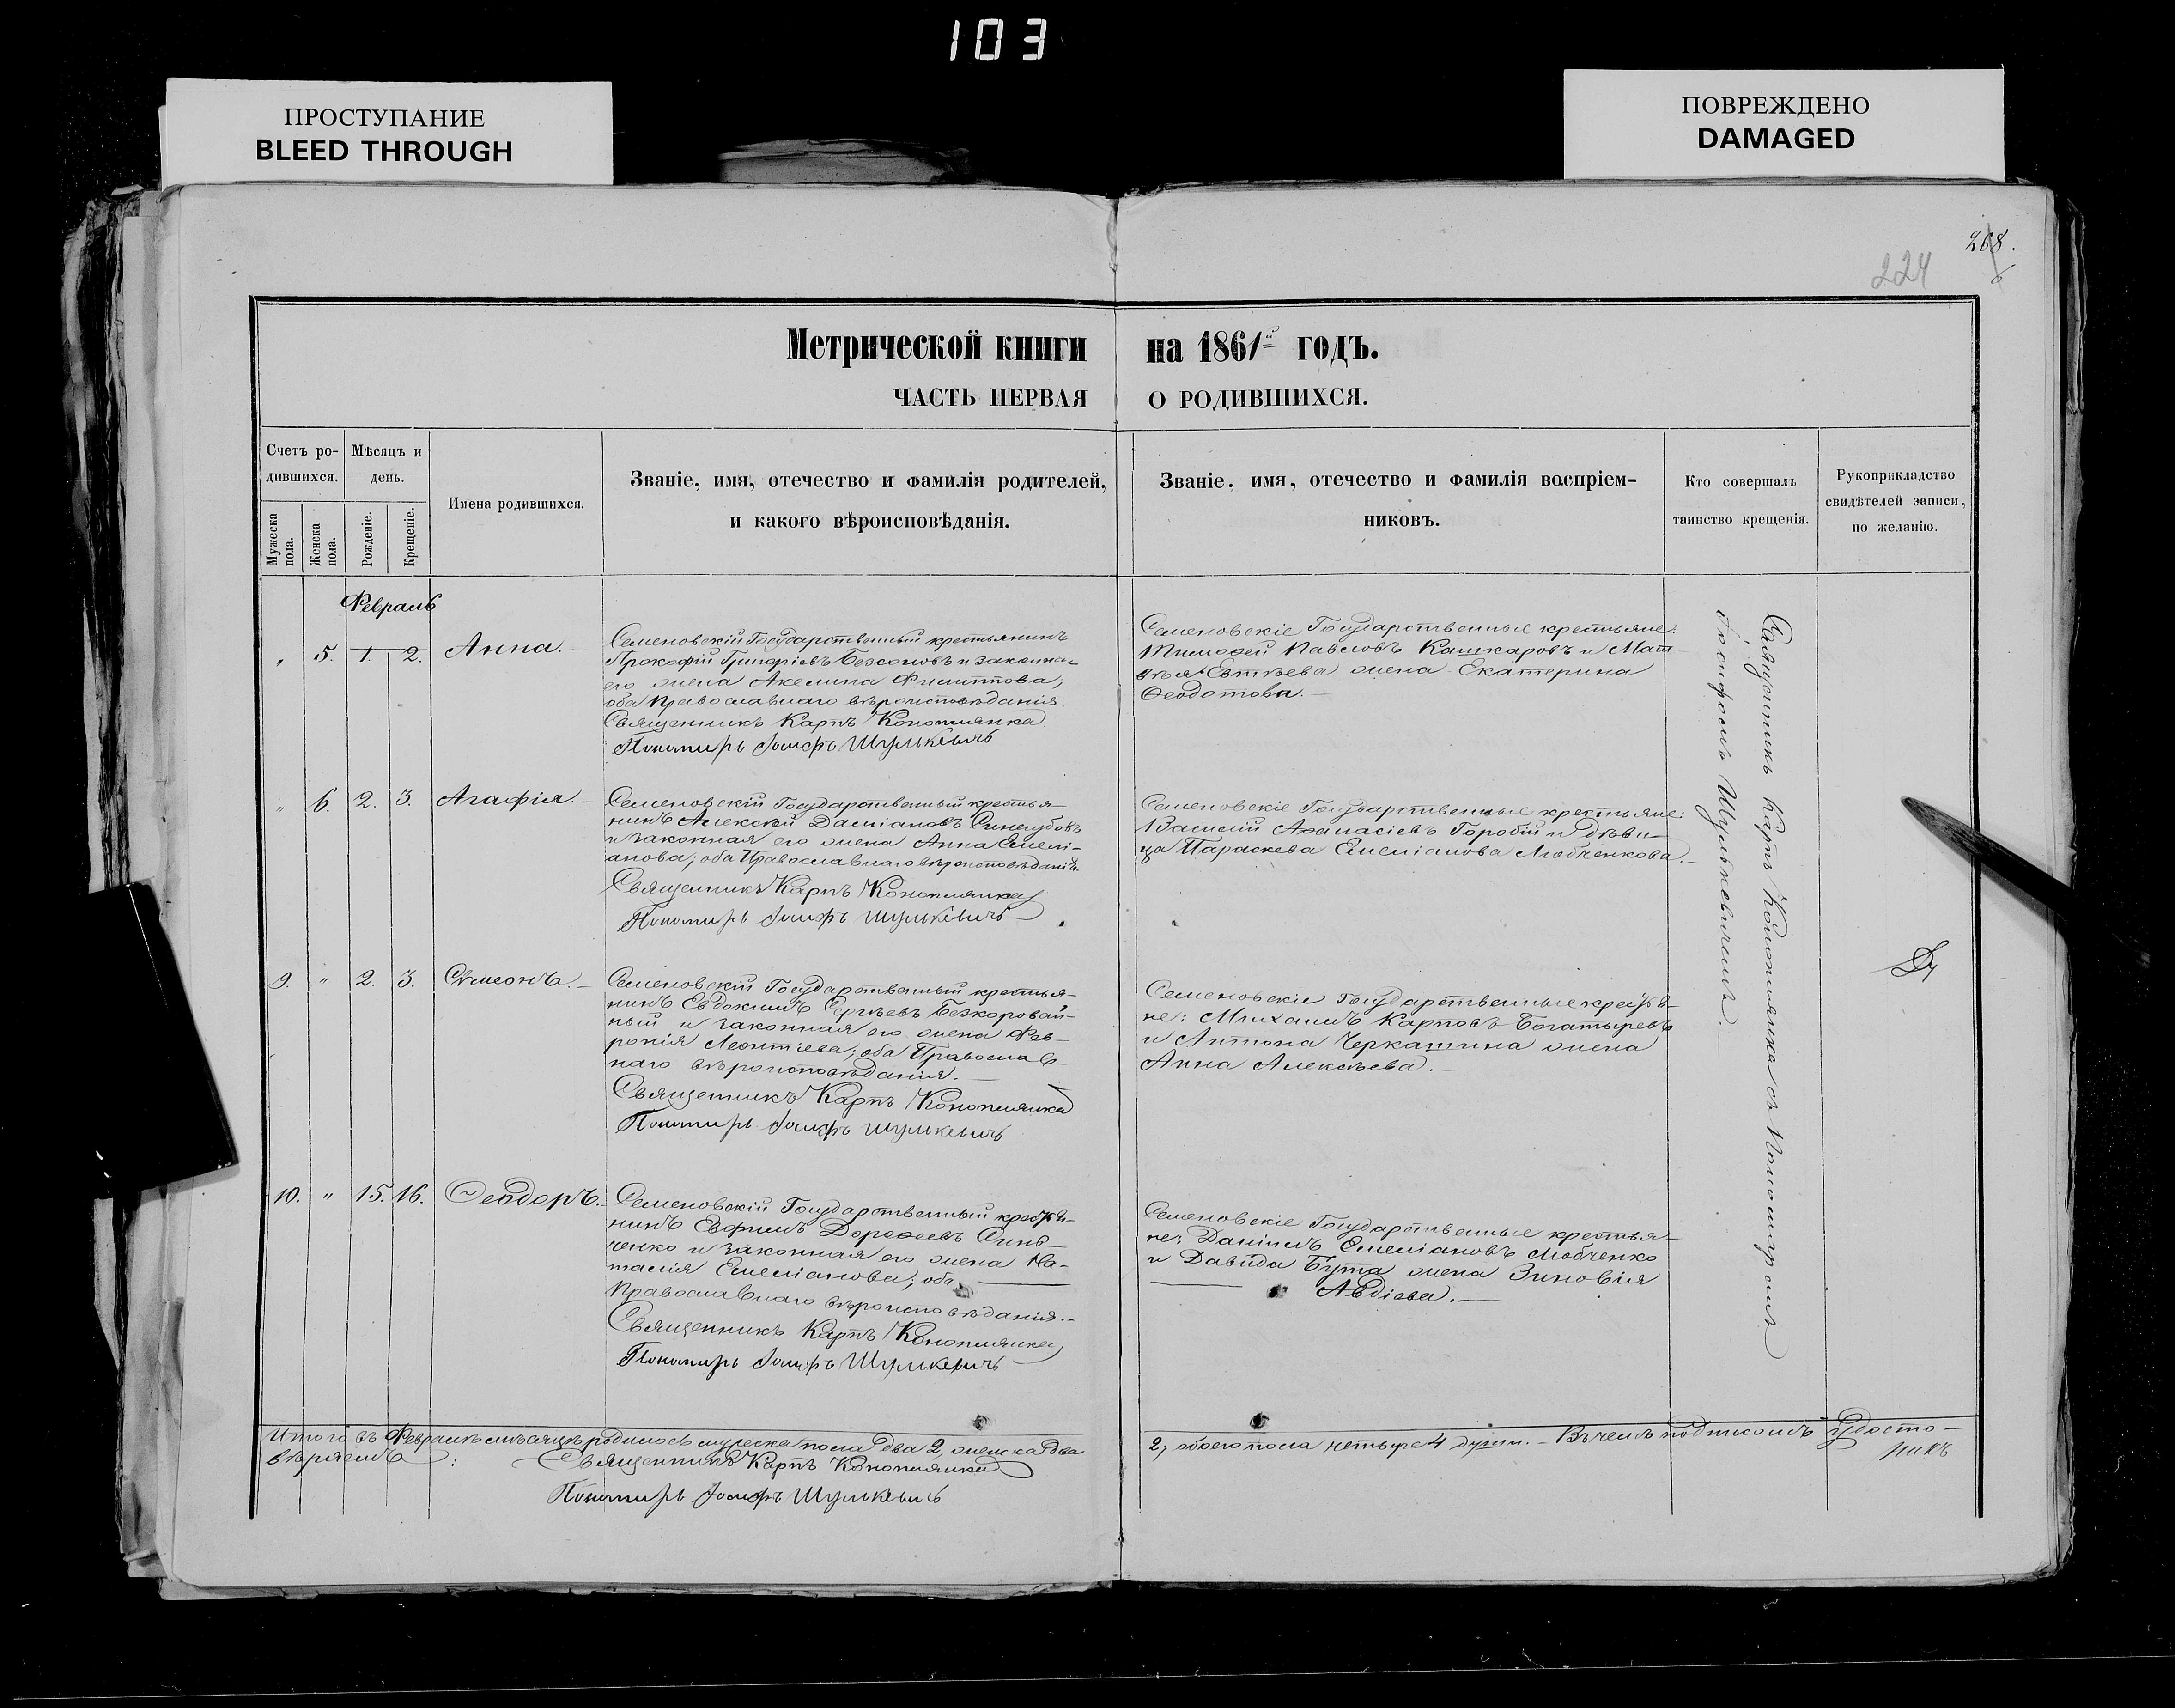 103
ПРОСТУПАНИЕ
BLEED THROUGH
ПОВРЕЖДЕНО
DAMAGED
268.
6
224
Метрической книги на 1861й годъ.
ЧАСТЬ ПЕРВАЯ О РОДИВШИХСЯ.
Счетъ ро-
дившихся.
Мужеска пола.
Женска пола.
Мѣсяцъ и
день.
Рожденіе.
Крещеніе.
Имена родившихся.
Званіе, имя, отечество и фамилія родителей,
и какого вѣроисповѣданія.
Званіе, имя, отечество и фамилія воспріем-
никовъ.
Кто совершалъ
таинство крещенія.
Рукоприкладство
свидѣтелей записи,
по желанію.
Февраль
" 5. 1. 2. Анна.
Семеновскій Государственный крестьянинъ
Прокофій Григоріевъ Безсоновъ и законна-
его жена Акелина Филиппова;
оба Православнаго вѣроисповѣданія
Священникъ Карпъ Конопляика
Пономарь Іосифъ Шулькевичъ
Семеновскіе Государственные крестьяне:
Тимофей Павловъ Кашкаровъ и Мат-
вѣя Евтѣева жена Екатерина
Ѳеодотова.
" 6. 2. 3. Агафія.
Семеновскій Государственный крестья-
нинъ Алексѣй Даміановъ Синегубовъ
и законная его жена Анна Емелі-
анова; оба Православнаго вѣроисповѣданія.
Священникъ Карпъ Конопляика
Пономарь Іосифъ Шулькевичъ
Семеновскіе Государственные крестьяне:
Василій Аѳанасіевъ Горобій и дѣви-
ца Параскева Емеліанова Любченкова.
9. " 2. 3. Сѵмеонъ.
Семеновскій Государственный крестья-
нинъ Евдокимъ Сергѣевъ Безкоровай-
ный и законная его жена Фев-
ронія Леонтіева; оба Православ-
наго вѣроисповѣданія.
Священникъ Карпъ Конопляика
Пономарь Іосифъ Шулькевичъ
Семеновскіе Государственные крестья-
не: Михаилъ Карповъ Богатыревъ
и Антона Черкашина жена
Анна Алексѣева.
10. " 15. 16. Ѳеодоръ.
Семеновскій Государственный крестья-
нинъ Евфимъ Дороѳеевъ Синь-
ченко и законная его жена На-
талія Емеліанова; оба
Православнаго вѣроисповѣданія.
Священникъ Карпъ Конопляика
Пономарь Іосифъ Шулькевичъ
Семеновскіе Государственные крестья-
не: Даніилъ Емеліановъ Любченко
и Давида Бута жена Зиновія
Авдіева.
Священникъ Карпъ Конопляика съ Пономаремъ
Іосифомъ Шулькевичемъ.
Итого въ Февралѣ мѣсяцѣ родилось мужеска пола два 2, женска два
2, обоего пола четыре 4 души. Въ чемъ подписомъ удосто-
вѣряемъ:
Священникъ Карпъ Конопляика
Пономарь Іосифъ Шулькевичъ